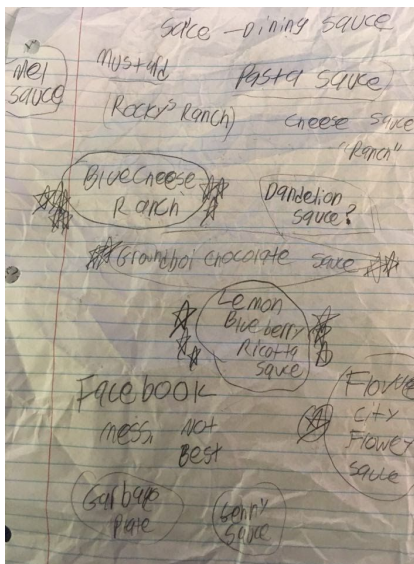 Sauce - Dining Sauce
Mustard
Mel
Sauce
Pasta Sauce
(Rocky's Ranch)
Cheese Sauce
"Ranch"
Blue Cheese
Ranch
Dandelion
Sauce?
Groundhoi Chocolate Sauce
Lemon
Blueberry
Ricotta
Sauce
Facebook
mess, Not
Best
Flower
City
Flower
Sauce
Garbage
Plate
Genny
Sauce